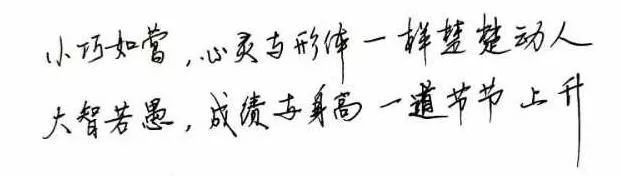 小巧如蕾,心灵与形体一样楚楚动人
大智若愚,成绩与身高一道节节上升